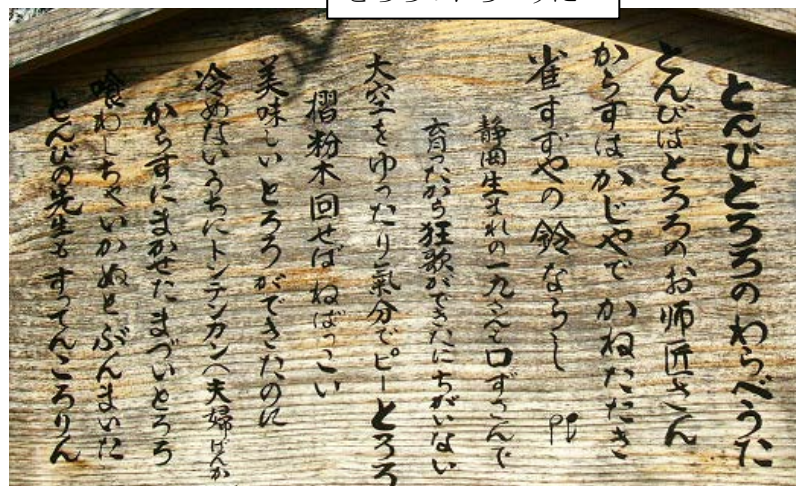 とんびとろろのわらべうた
とんびはとろろのお師匠さん
からすはかじやで かねたたき
雀すずやの鈴ならし
静岡生まれの一九さんも口ずさんで
育ったから狂歌ができたにちがいない
大空をゆったり氣分でピーとろろ
摺粉木回せばねばっこい
美味しいとろろができたのに
冷めないうちにトンテンカンへ夫婦げんか
からすにまかせたまづいとろろ
喰わしちゃいかぬとぶんまいた
とんびの先生もすってんころりん